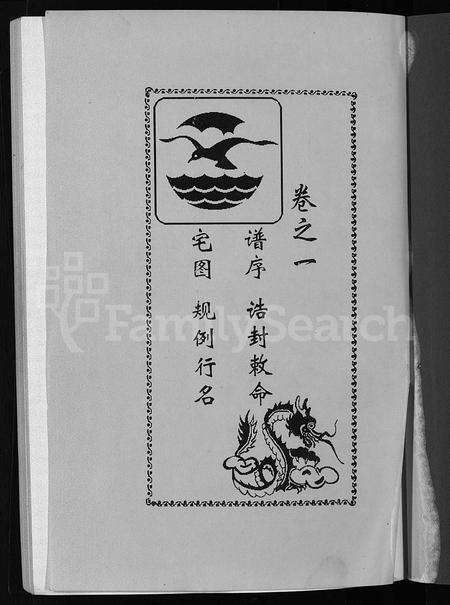 卷之一
谱序 诰封敕命
宅图 规例行名
FamilySearch